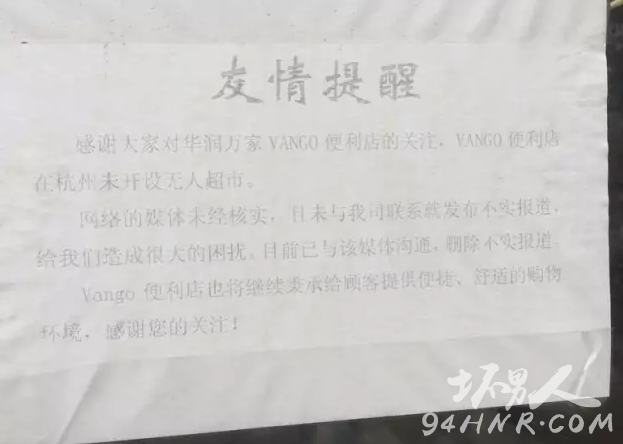 友情提醒
感谢大家对华润万家 VANGO 便利店的关注，VANGO 便利店
在杭州未开设无人超市。
网络的媒体未经核实，且未与我司联系就发布不实报道，
给我们造成很大的困扰。目前已与该媒体沟通，删除不实报道。
Vango 便利店也将继续秉承给顾客提供便捷、舒适的购物
环境，感谢您的关注！
坏男人
94HNR.COM